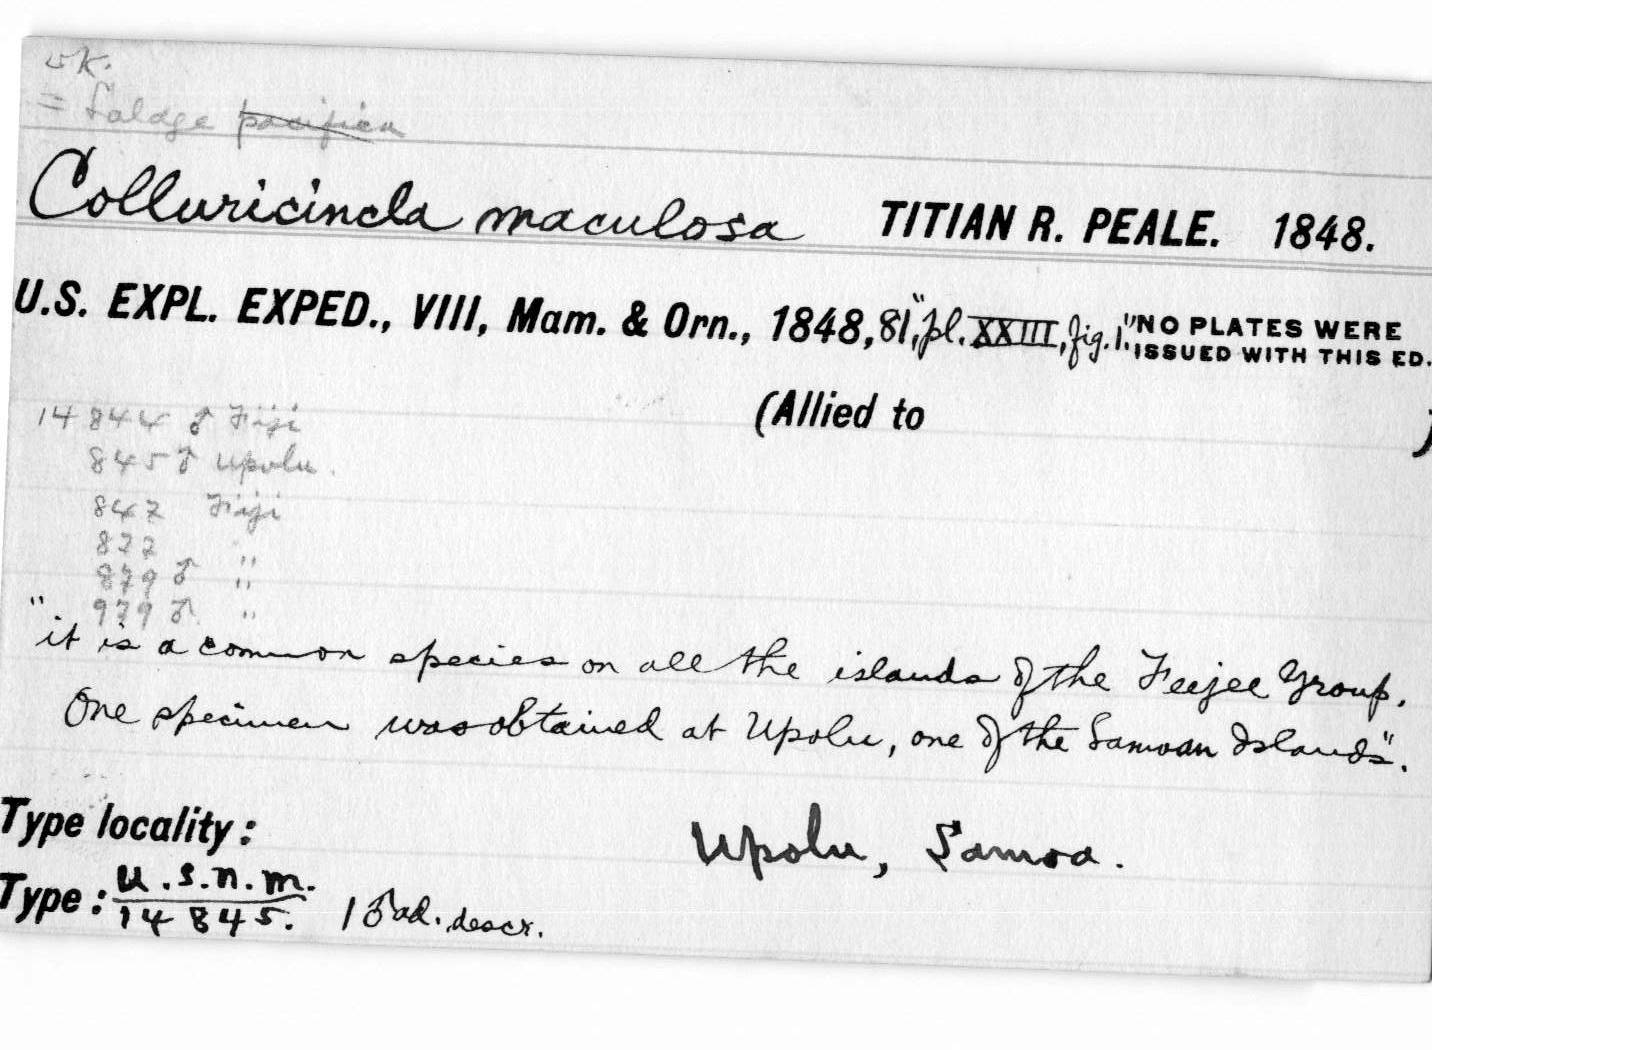 ok.
= Lalage pacifica
Colluricincla maculosa TITIAN R. PEALE. 1848.
U.S. EXPL. EXPED., VIII, Mam. & Orn., 1848, 81, "pl. XXIII, fig. 1." NO PLATES WERE
ISSUED WITH THIS ED.
(Allied to )
14844 ♂ Fiji
845 ♂ Upolu.
847 Fiji
877 "
879 ♂ "
979 ♂ "
"it is a common species on all the islands of the Feejee Group.
One specimen was obtained at Upolu, one of the Samoan Islands".
Type locality: Upolu, Samoa.
Type: U.S.N.M.
14845. 1 ♂ ad. descr.